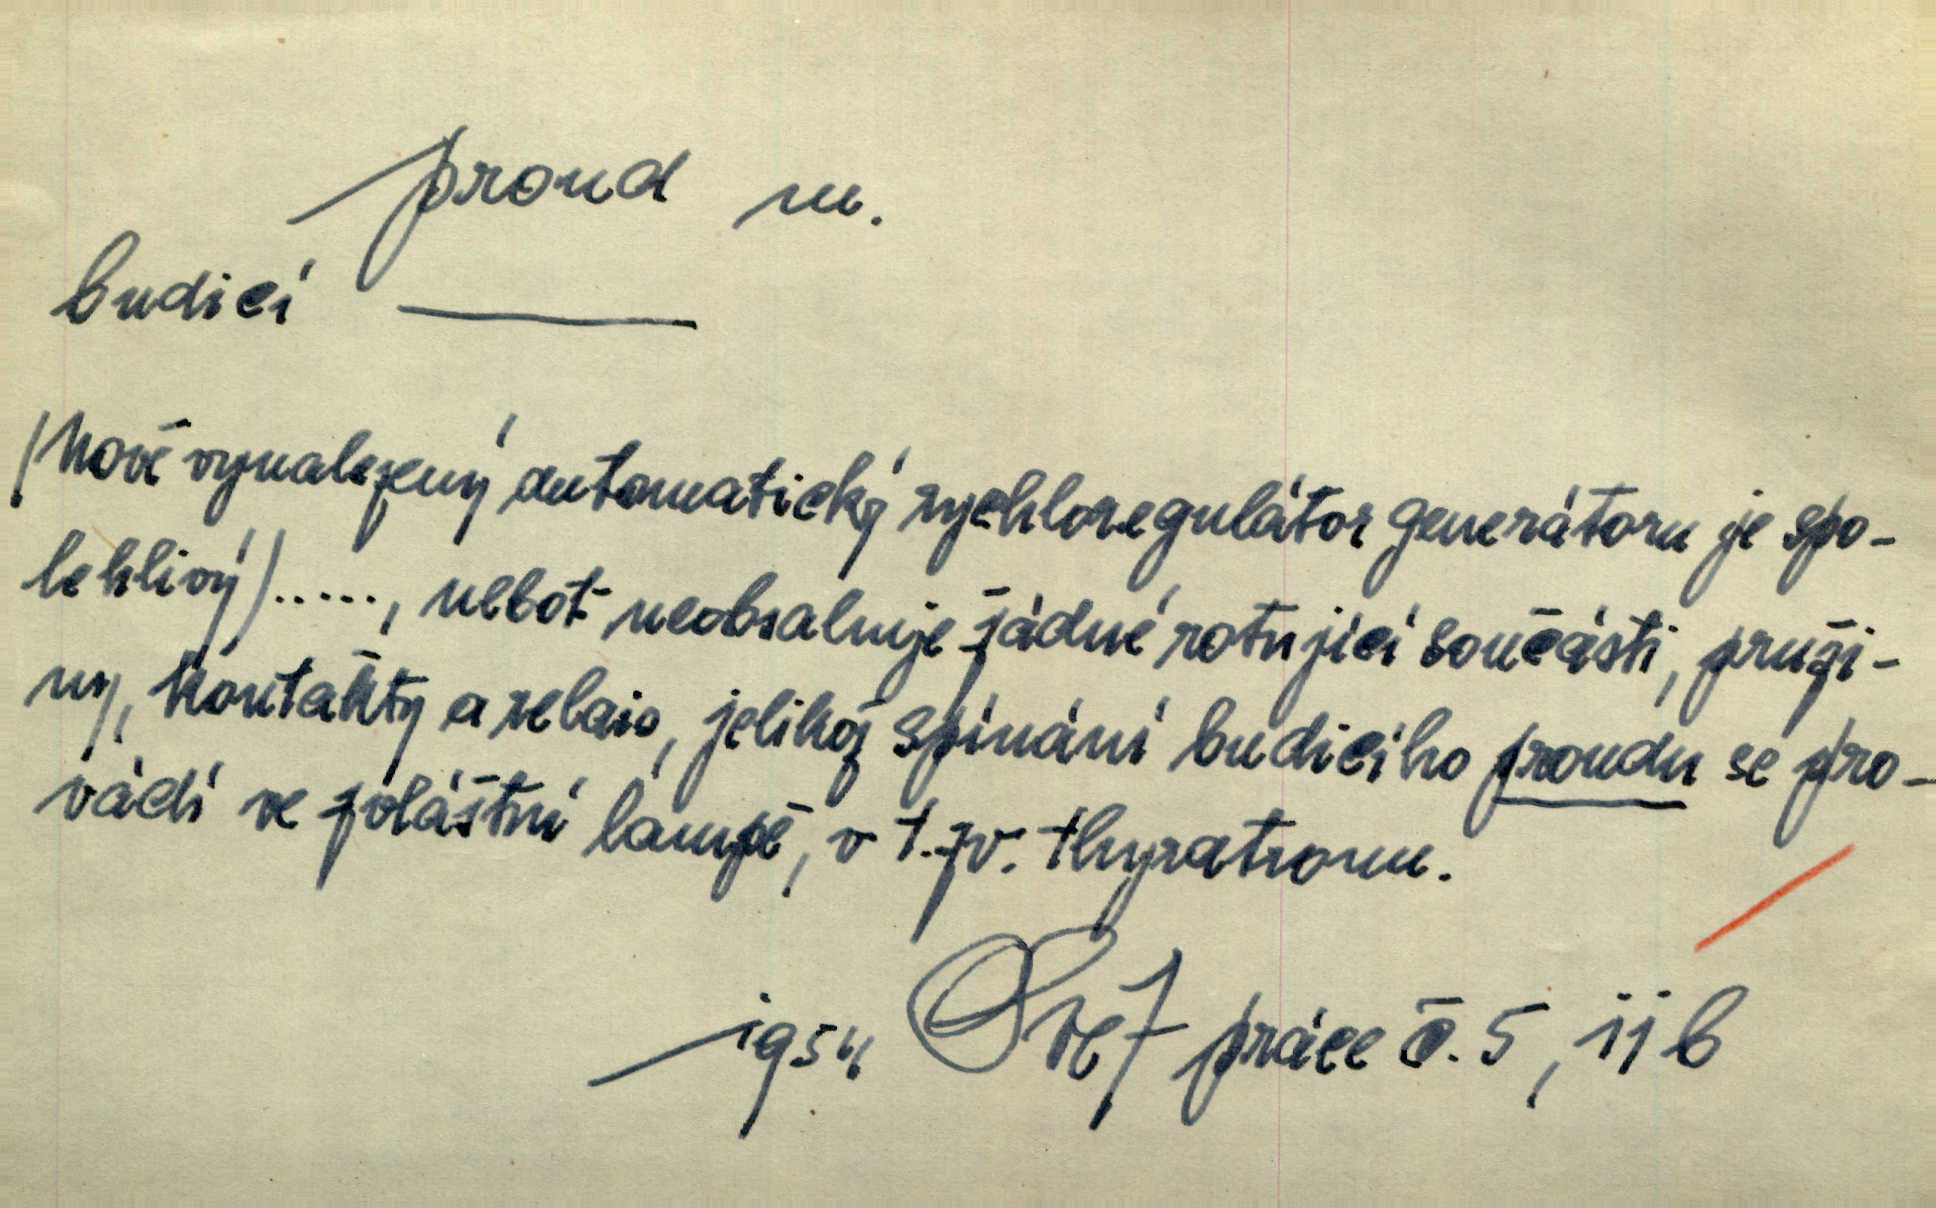 proud m.
budicí ———
(Nově vynalezený automatický rychloregulátor generátoru je spo-
lehlivý)....., neboť neobsahuje žádné rotující součásti, pruži-
ny, kontakty a relais, jelikož spínání budicího proudu se pro-
vádí ve zvláštní lampě, v t.zv. thyratronu.
1954 práce č. 5, 11 b